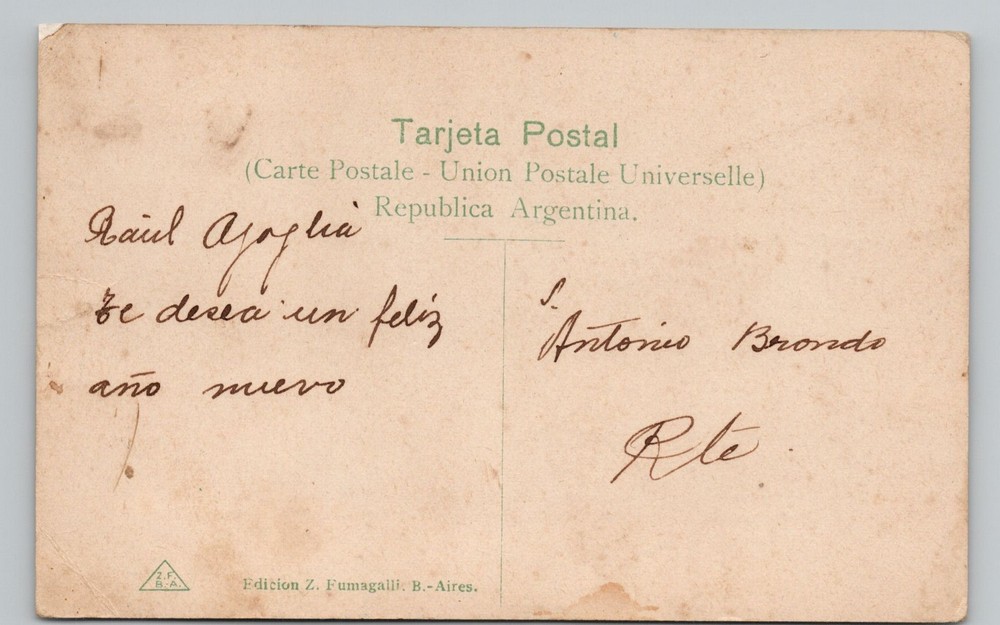 Tarjeta Postal
(Carte Postale - Union Postale Universelle)
Republica Argentina.
Raúl Agoglia
Te desea un feliz
año nuevo
S.
Antonio Brondo
Rte.
Z.F.
B.-A.
Edicion Z. Fumagalli. B.-Aires.